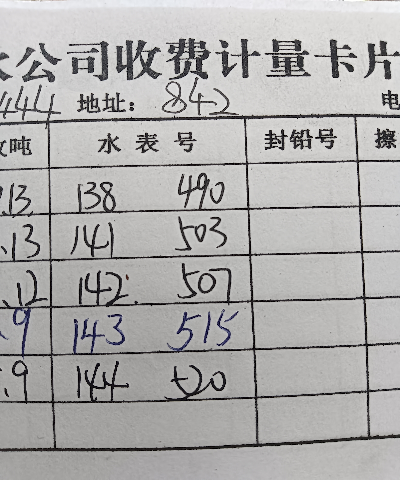 水公司收费计量卡片
444 地址: 842 电
收吨 水表号 封铅号 擦
.13 138 490
.13 141 503
.12 142 507
.9 143 515
.9 144 520